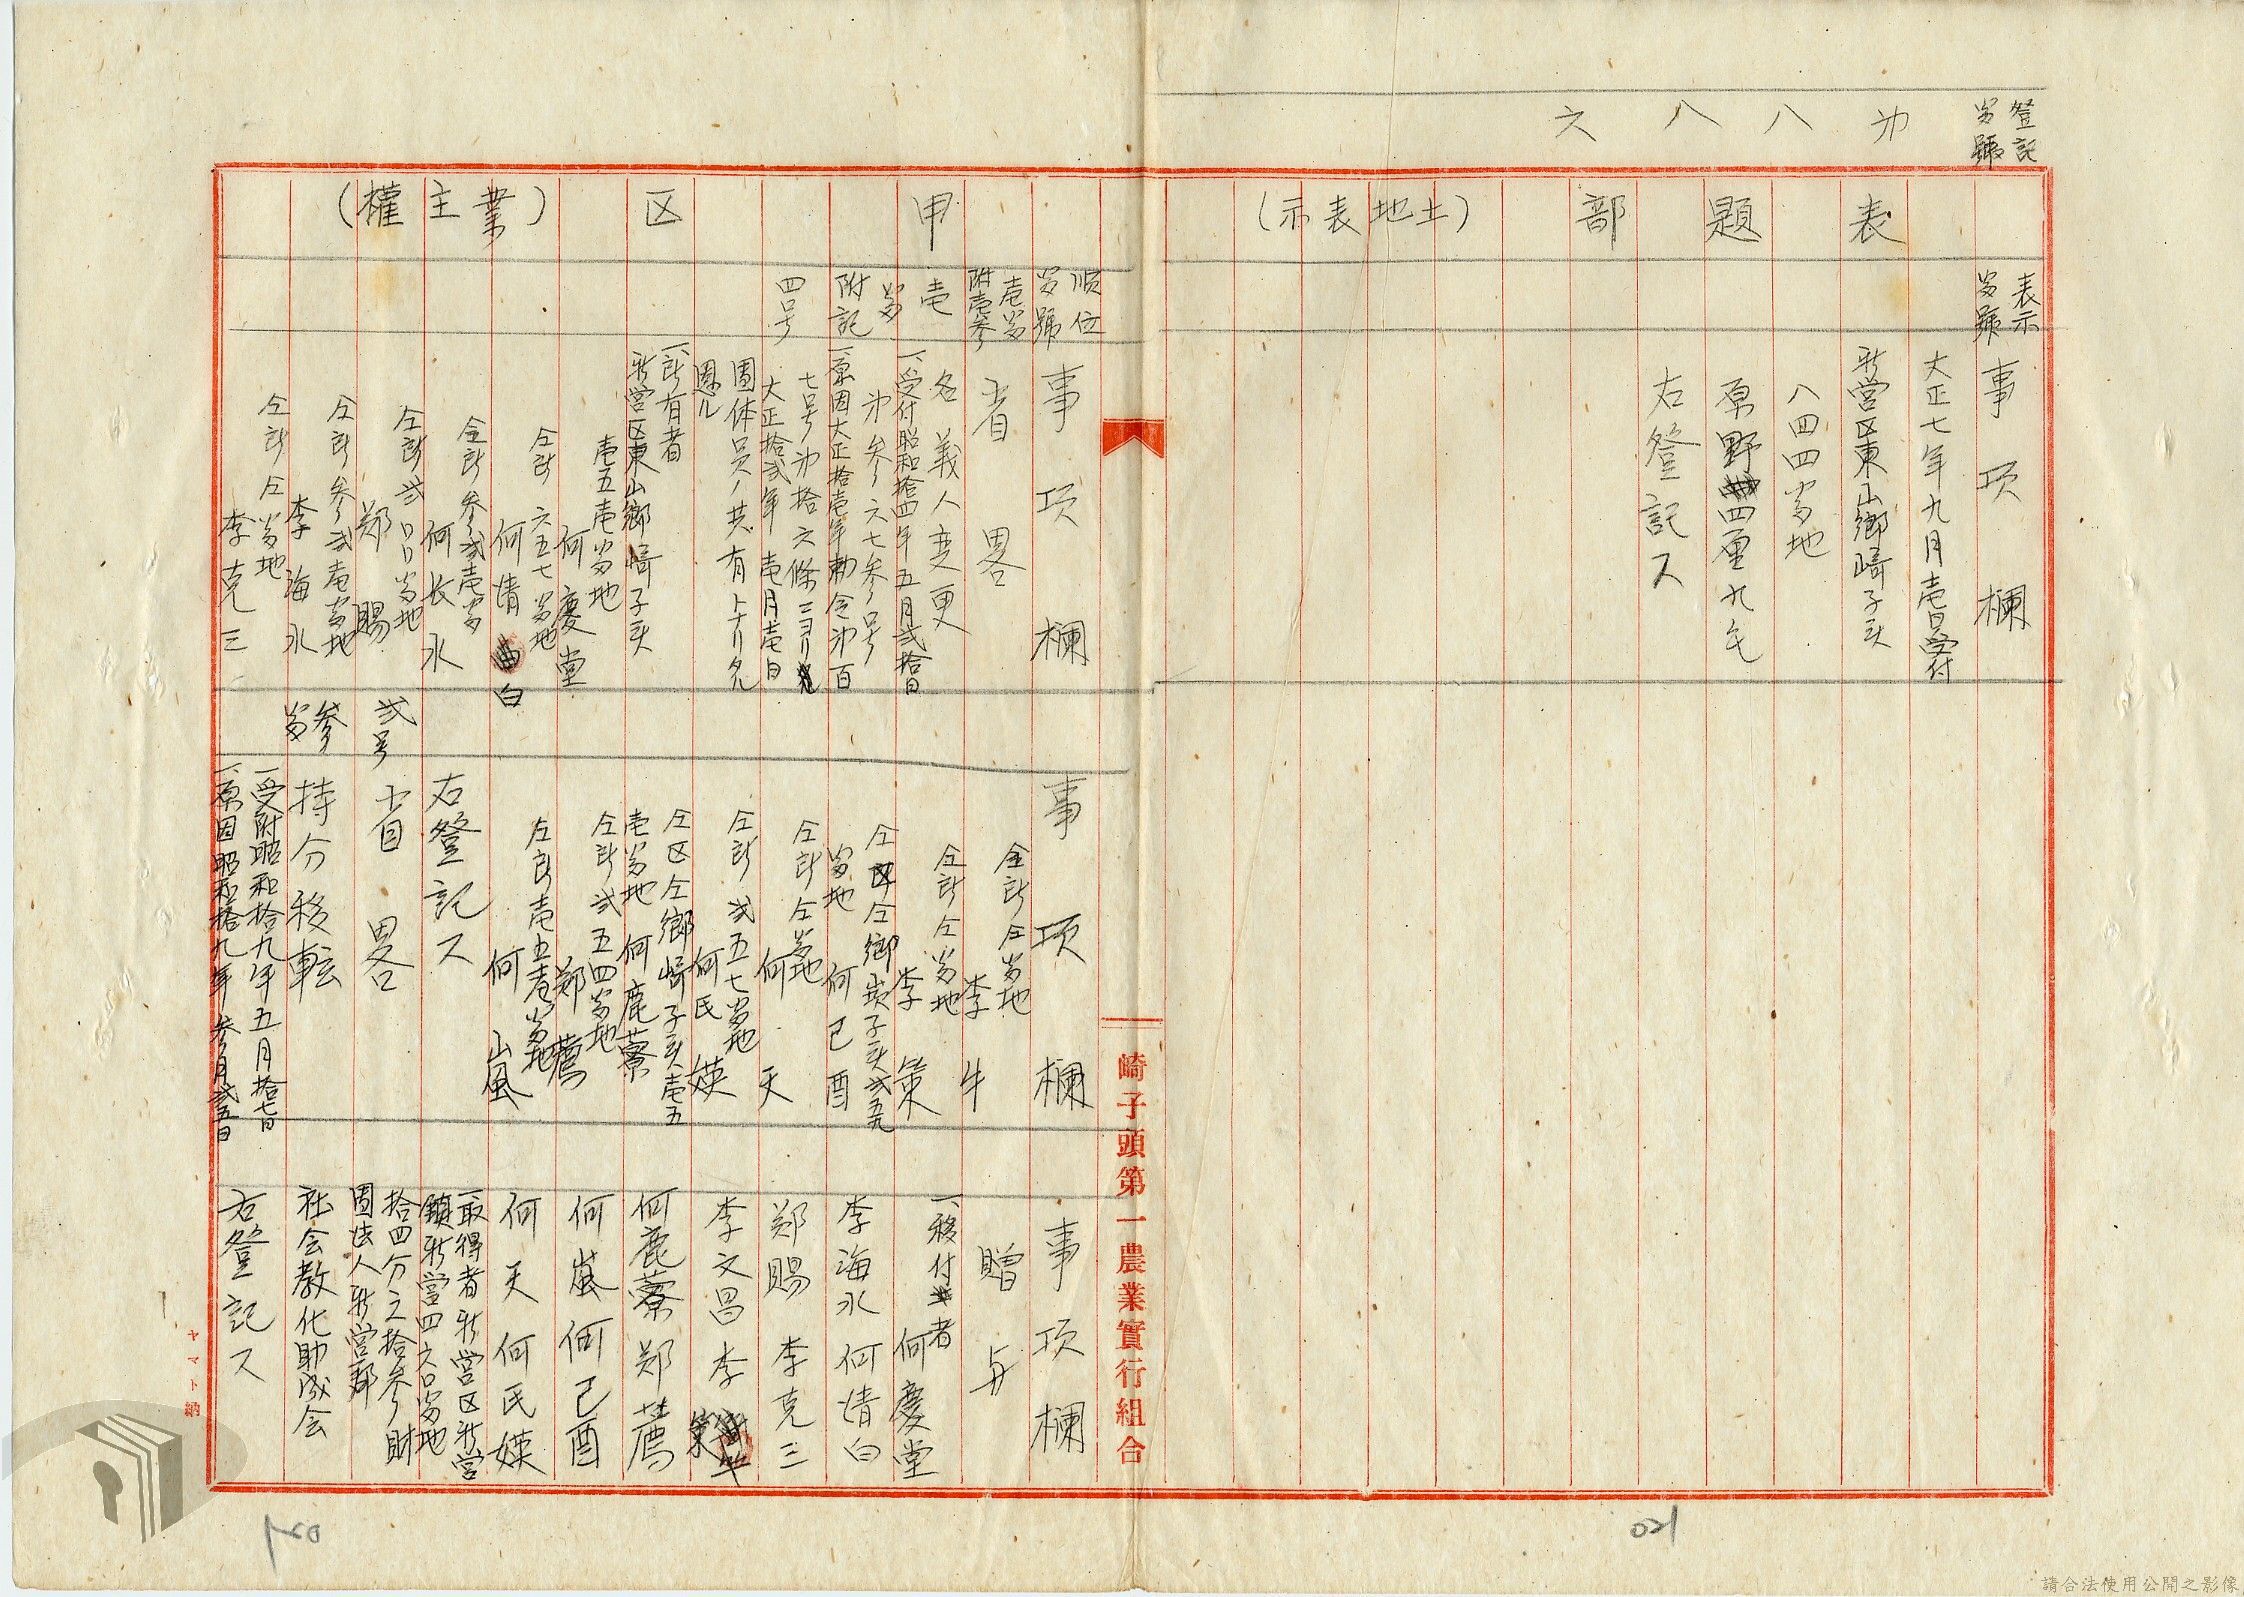 登記
番號
第八八六
表題部（土地表示）
表示
番號
事項欄
大正七年九月壱日受付
新営区東山郷崎子头
八四四番地
原野四厘九毛
右登記ス
崎子頭第一農業實行組合
甲区（業主權）
順位
番號
事項欄
壱番
附壱参
省畧
壱番
附記
四号
名義人変更
一、受付昭和拾四年五月弐拾日
第参六七参号
一、原因大正拾壱年勅令第百
七号第拾六條ニヨリ
大正拾弐年壱月壱日
團体員ノ共有トナリタル
一、所有者
新営区東山郷崎子头
壱五壱番地
何慶堂
仝所六五七番地
何清白
仝所参弐壱番
何長水
仝所弐〇〇番地
郑賜
仝所参弐壱番地
李海水
仝所仝番地
李克三
事項欄
仝所仝番地
李牛
仝所仝番地
李策
仝区仝郷崁子头弐五九
番地 何己酉
仝所仝番地
何天
仝所弐五七番地
何氏媖
仝区仝郷崎子头壱五
壱番地 何鹿藔
仝所弐五四番地
郑薦
仝所壱五壱番地
何嵐
右登記ス
弐号
省畧
参番
持分移転
一、受附昭和拾九年五月拾七日
一、原因昭和拾九年参月弐五日
事項欄
贈与
一、移付者
何慶堂
李海水 何清白
郑賜 李克三
李文昌 李
策
何鹿藔 郑薦
何嵐 何己酉
何天 何氏媖
一、取得者新営区新営
鎮新営四六〇番地
拾四分之拾参 財
團法人新営郡
社会教化助成会
右登記ス
ヤマト納
021
請合法使用公開之影像